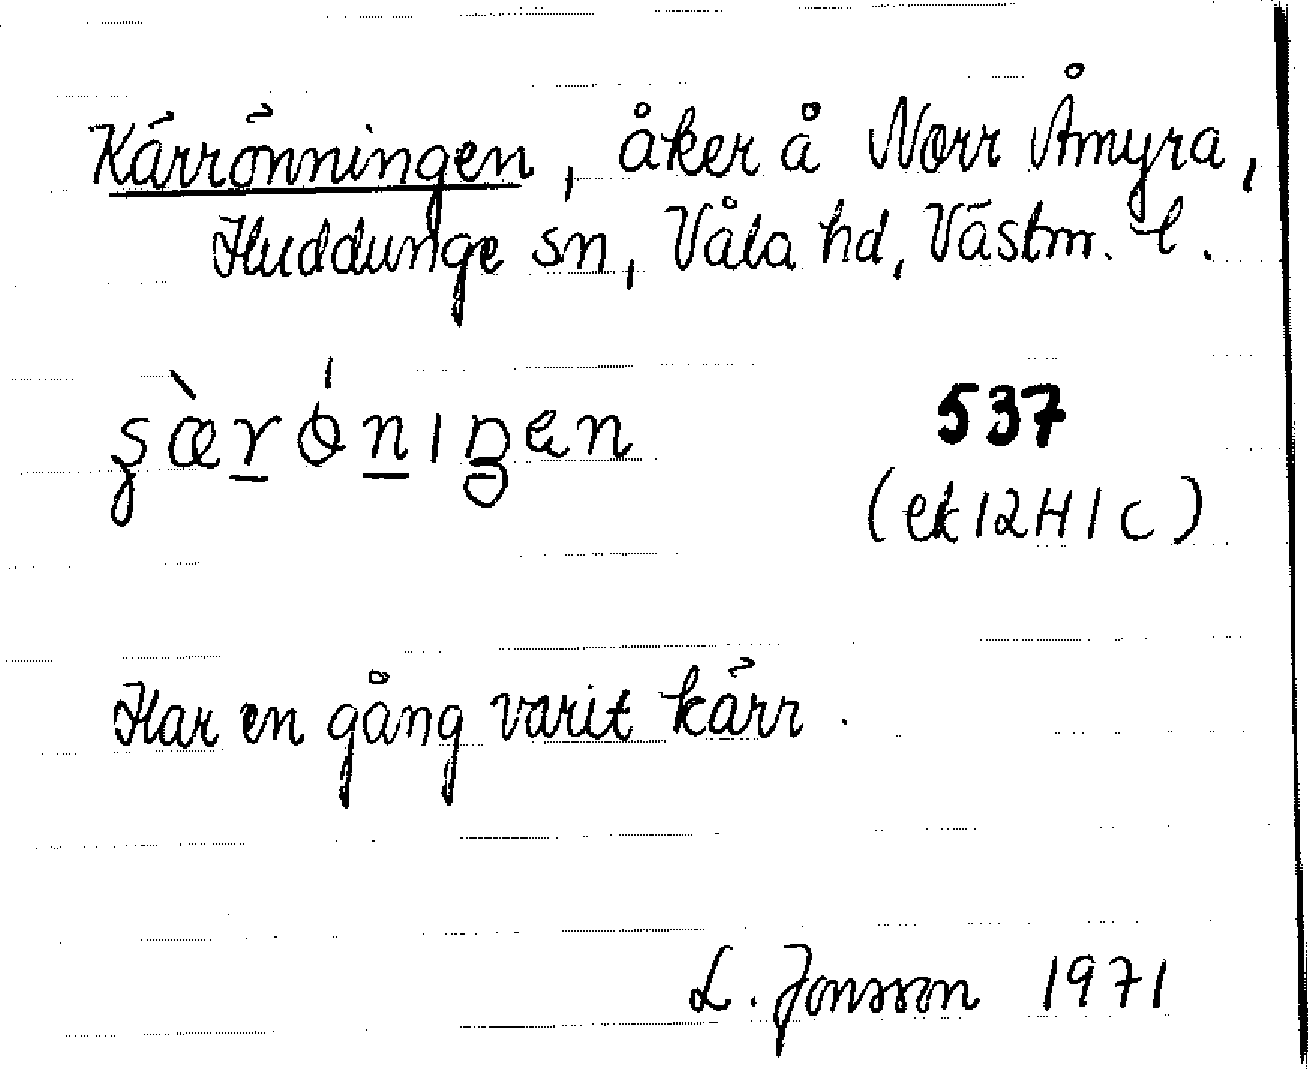 Kärrönningen, åker å Norr Åmyra,
Huddunge sn, Våla hd, Västm. l.
537
(ek 12H1c)
Har en gång varit kärr.
L. Jonsson 1971